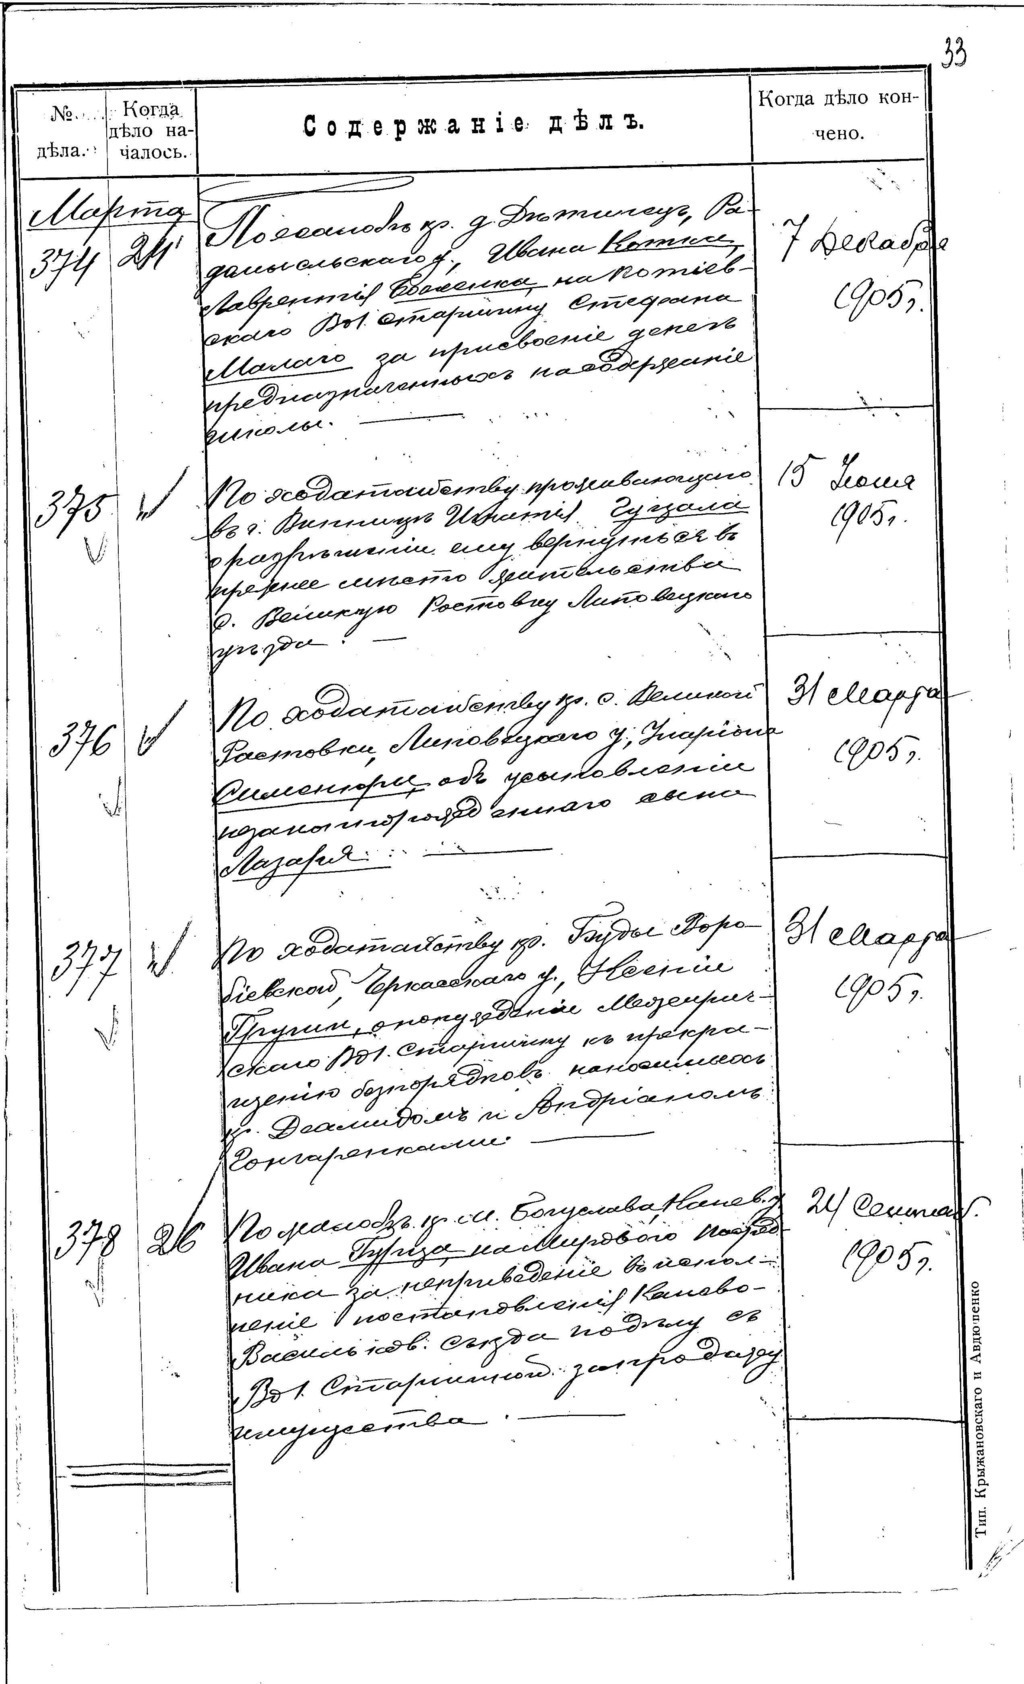 33
№ дѣла.
Когда дѣло на-
чалось.
Содержаніе дѣлъ.
Когда дѣло кон-
чено.
Марта
374 24
По жалобѣ кр. д. Ра-
домысльскаго у., Ивана
Лаврентія на Котіев-
скаго Вол. старшину Стефана
Малаго за присвоеніе денегъ
предназначенныхъ на содержаніе
школы.
7 Декабря
1905 г.
375
По ходатайству проживающаго
въ г. Винницѣ Игнатія
о разрѣшеніи ему вернуться въ
прежнее мѣсто жительства
с. Великую Ростовку Липовецкаго
уѣзда.
15 Іюня
1905 г.
376
По ходатайству кр. с. Великой
Ростовки, Липовецкаго у., Иларіона
объ усыновленіи
незаконнорожденнаго сына
Лазаря.
31 Марта
1905 г.
377
По ходатайству кр. Буды Воро-
біевской, Черкасскаго у., Ксеніи
о понужденіи Межирич-
скаго Вол. старшину къ прекра-
щенію безпорядковъ наносимыхъ
кр. и Андріаномъ
Гончаренками.
31 Марта
1905 г.
378 26
По жалобѣ кр. м. Богуслава, Канев. у.
Ивана на Мирового Посред-
ника за неприведеніе въ испол-
неніе постановленія Канево-
Васильков. съѣзда по дѣлу съ
Вол. Старшиной за продажу
имущества.
24 Сентяб.
1905 г.
Тип. Крыжановскаго и Авдюшенко